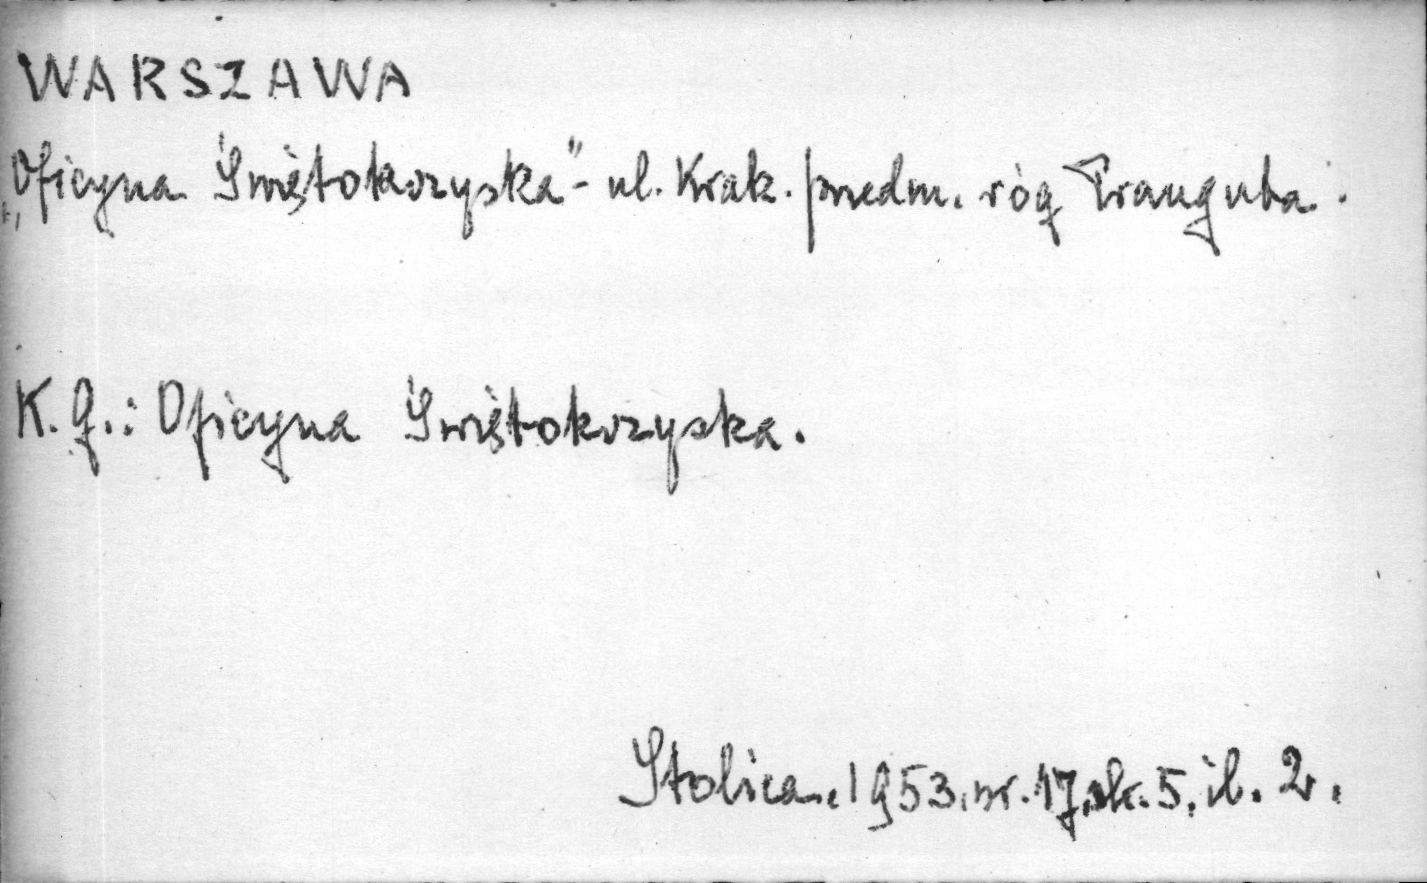 WARSZAWA
„Oficyna Świętokrzyska" - ul. Krak. przedm. róg Trauguta.
K. G.: Oficyna Świętokrzyska.
Stolica. 1953. nr. 17. str. 5. il. 2.